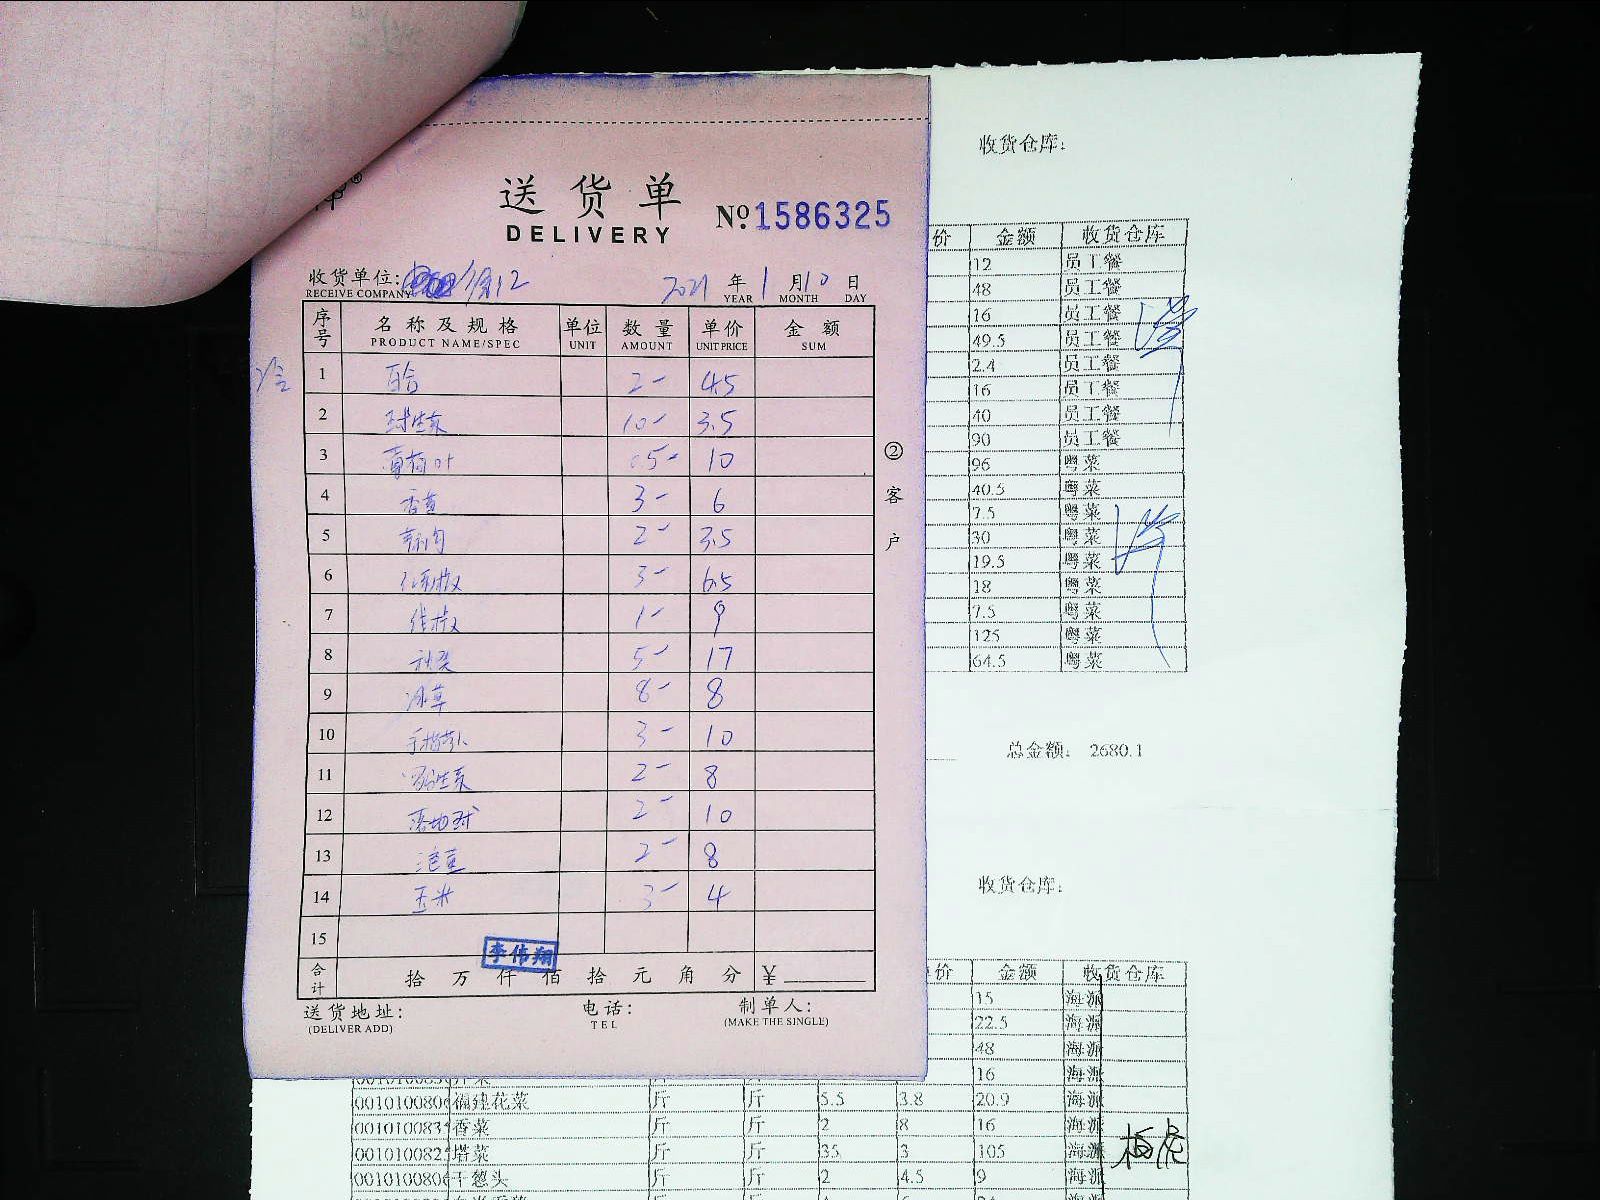 送货单
DELIVERY
№ 1586325
收货单位:
RECEIVE COMPANY
2021 年 1 月 10 日
YEAR MONTH DAY
序号 名称及规格 单位 数量 单价 金额
PRODUCT NAME/SPEC UNIT AMOUNT UNIT PRICE SUM
1 百合 2- 4.5
2 球生菜 10- 3.5
3 薄荷叶 .5- 10
4 香菜 3- 6
5 2- 3.5
6 3- 6.5
7 线椒 1- 9
8 秋葵 5- 17
9 冰草 8- 8
10 手指萝卜 3- 10
11 罗马生菜 2- 8
12 2- 10
13 2- 8
14 玉米 3- 4
15
李伟翔
合计 拾 万 仟 佰 拾 元 角 分 ¥
送货地址: 电话: 制单人:
(DELIVER ADD) TEL (MAKE THE SINGLE)
② 客户
收货仓库:
价 金额 收货仓库
12 员工餐
48 员工餐
16 员工餐
49.5 员工餐
2.4 员工餐
16 员工餐
40 员工餐
90 员工餐
96 粤菜
40.5 粤菜
7.5 粤菜
30 粤菜
19.5 粤菜
18 粤菜
7.5 粤菜
125 粤菜
64.5 粤菜
总金额: 2680.1
收货仓库:
价 金额 收货仓库
15 海派
22.5 海派
48 海派
16 海派
福建花菜 斤 斤 5.5 3.8 20.9 海派
香菜 斤 斤 2 8 16 海派
塔菜 斤 斤 35 3 105 海派
干葱头 斤 斤 2 4.5 9 海派